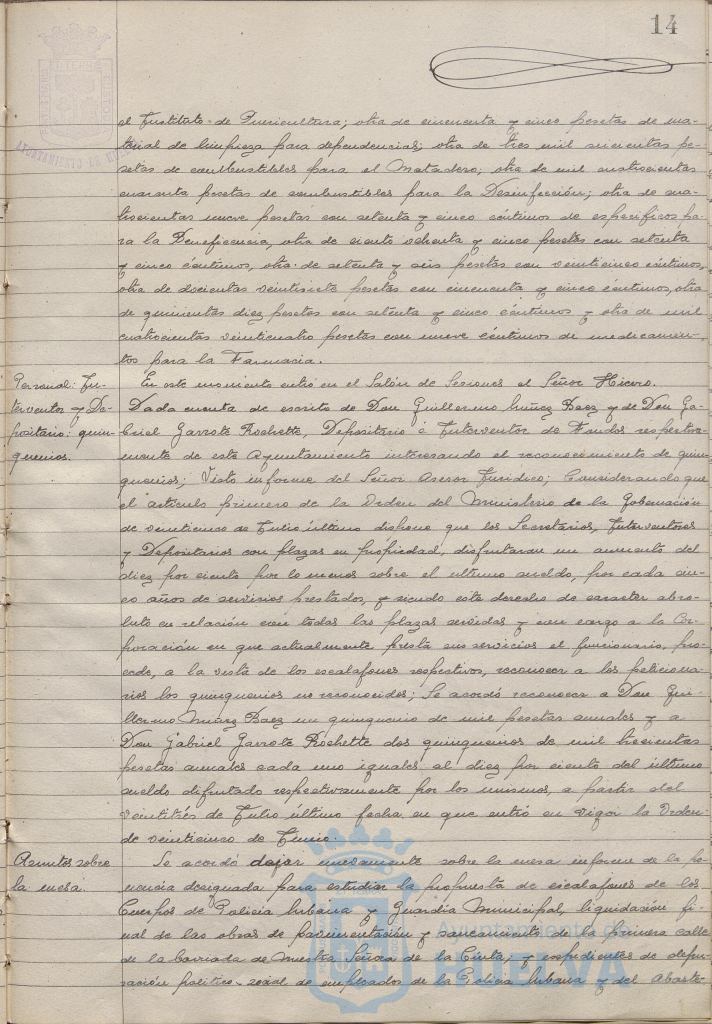 14
el Instituto de Puericultura; otra de cincuenta y cinco pesetas de ma-
terial de limpieza para dependencias; otra de tres mil pe-
setas de combustibles para el Matadero, otra de mil cuatrocientas
cuarenta pesetas de combustibles para la Desinfección; otra de
nueve pesetas con setenta y cinco céntimos de específicos pa-
ra la Beneficencia, otra de ciento ochenta y cinco pesetas con setenta
y cinco céntimos, otra de setenta y seis pesetas con veinticinco céntimos,
otra de doscientas veintisiete pesetas con cincuenta y cinco céntimos, otra
de quinientas diez pesetas con setenta y cinco céntimos y otra de mil
cuatrocientas veinticuatro pesetas con nueve céntimos de medicamen-
tos para la Farmacia.
Personal: In-
terventor y De-
positario: quin-
quenios.
En este momento entró en el Salón de Sesiones el Señor
Dada cuenta de escrito de Don Guillermo Muñoz Baez y de Don Ga-
briel Garrote Rochette, Depositario é Interventor de Fondos respectiva-
mente de este Ayuntamiento interesando el reconocimiento de quin-
quenios; Visto informe del Señor Asesor Jurídico; Considerando que
el artículo primero de la Orden del Ministerio de la Gobernación
de veinticinco de Julio último dispone que los Secretarios, Interventores
y Depositarios con plazas en propiedad, disfrutaran un aumento del
diez por ciento por lo menos sobre el ultimo sueldo, por cada cin-
co años de servicios prestados, y siendo este derecho de caracter abso-
luto en relación con todas las plazas servidas y con cargo a la Cor-
poración en que actualmente presta sus servicios el funcionario, pro-
cede, a la vista de los escalafones respectivos, reconocer a los peticiona-
rios los quinquenios no reconocidos; Se acordó reconocer a Don Gui-
llermo Baez un quinquenio de mil pesetas anuales y a
Don Gabriel Garrote Rochette dos quinquenios de mil trecientas
pesetas anuales cada uno iguales al diez por ciento del último
sueldo disfrutado respectivamente por los mismos, a partir del
ventitrés de Julio último fecha en que entró en vigor la Orden
de veinticinco de Junio.
Asuntos sobre
la mesa.
Se acordó dejar nuevamente sobre la mesa informe de la po-
nencia designada para estudiar la propuesta de escalafones de los
Cuerpos de Policia Urbana y Guardia Municipal, liquidación fi-
nal de las obras de pavimentación y saneamiento de la primera calle
de la barriada de Nuestra Señora de la Cinta, y expedientes de depu-
ración politico-social de empleados de la Policia Urbana y del Abaste-
Ayuntamiento de
HUELVA